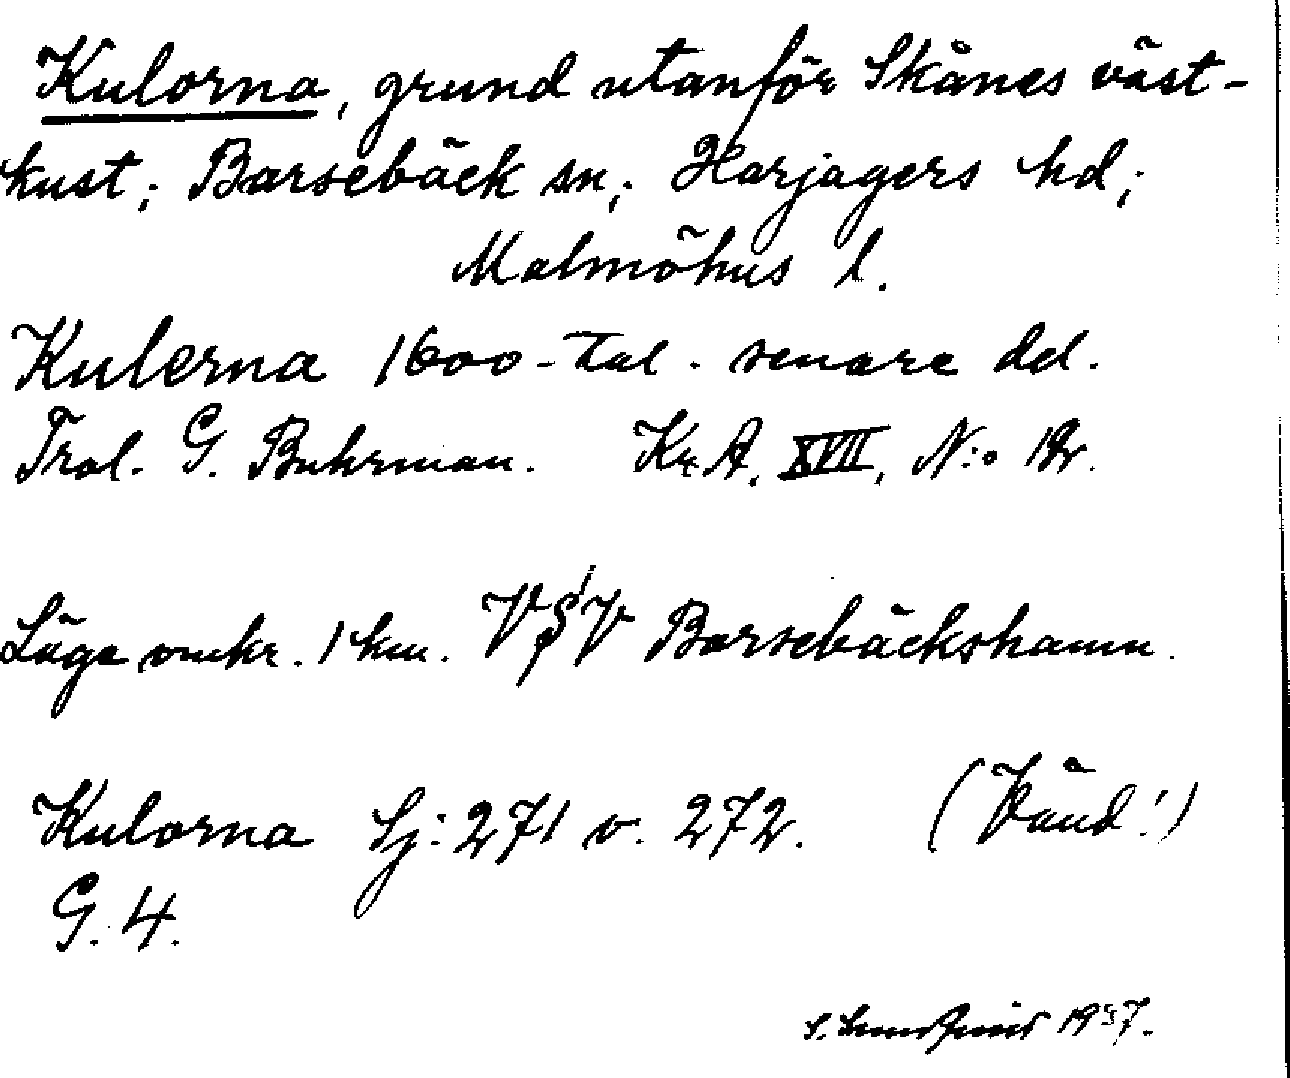 Kulorna, grund utanför Skånes väst-
kust; Barsebäck sn; Harjagers hd;
Malmöhus l.
Kulerna 1600-tal. senare del.
Trol. G. Buhrman. Kr. A. XVII, N:o 12.
Läge omkr. 1 km. V Barsebäckshamn.
Kulorna Sj: 271 v. 272. (Vänd!)
G. 4.
S. 1937.